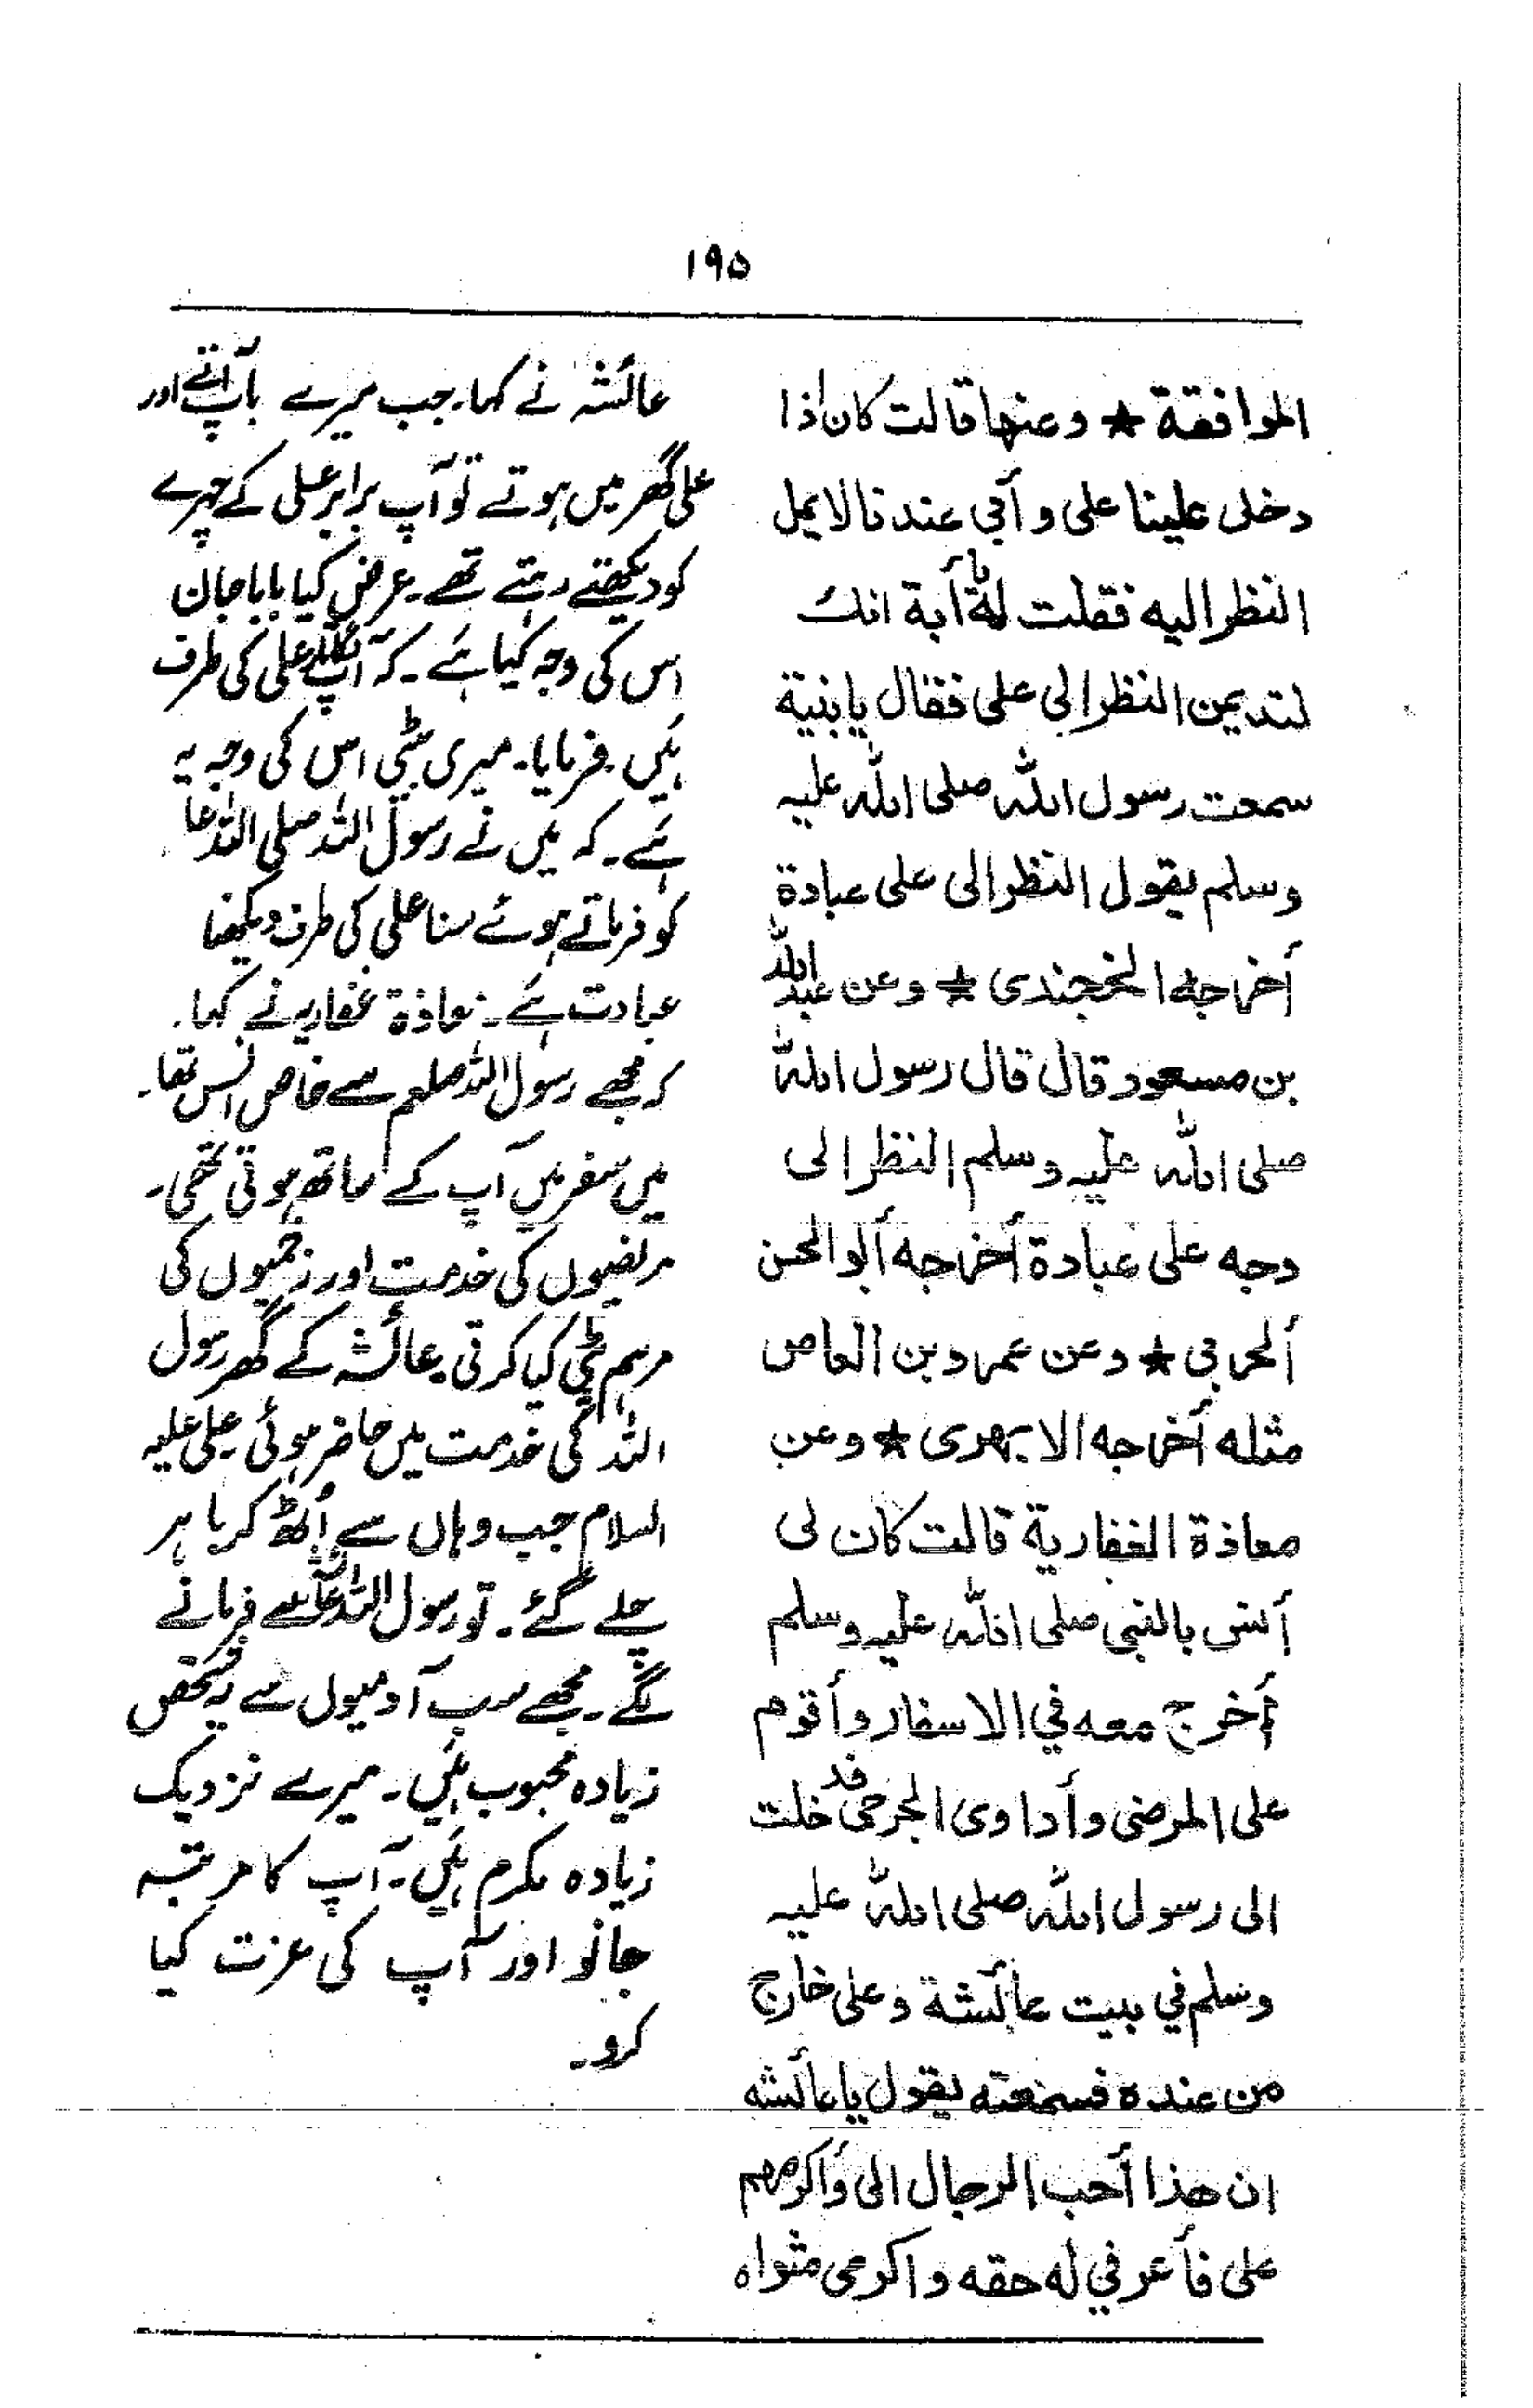 ۱۹۵
الموافقة ★ وعنها قالت كان اذا
دخل علينا على وأبي عندنا لايمل
النظر اليه فقلت له يا أبة انك
لتديمن النظر الى على فقال يا بنية
سمعت رسول الله صلى الله عليه
وسلم يقول النظر الى على عبادة
أخرجه الخجندى ★ وعن عبد الله
بن مسعود قال قال رسول الله
صلى الله عليه وسلم النظر الى
وجه على عبادة أخرجه أبو الحسن
ألحربي ★ وعن عمرو بن العاص
مثله أخرجه الابهرى ★ وعن
معاذة الغفارية قالت كان لى
أنس بالنبي صلى الله عليه وسلم
أخرج معه في الاسفار وأقوم
على المرضى وأداوى الجرحى فدخلت
الى رسول الله صلى الله عليه
وسلم في بيت عائشة وعلى خارج
من عنده فسمعته يقول يا عائشه
ان هذا أحب الرجال الى وأكرمهم
على فأعرفي له حقه واكرمى مثواه
عائشہ نے کہا۔ جب میرے باپ آتے اور
علی گھر میں ہوتے تو آپ برابر علی کے چہرے
کو دیکھتے رہتے تھے۔ عرض کیا بابا جان
اس کی وجہ کیا ہے۔ کہ آپ علی کی طرف
ہیں۔ فرمایا۔ میری بیٹی اس کی وجہ یہ
ہے۔ کہ میں نے رسول اللہ صلی اللہ
کو فرماتے ہوئے سنا علی کی طرف دیکھنا
عبادت ہے۔ معاذة غفاریہ نے کہا۔
کہ مجھے رسول اللہ صلعم سے خاص انس تھا۔
میں سفر میں آپ کے ساتھ ہوتی تھی۔
مریضوں کی خدمت اور زخمیوں کی
مرہم پٹی کیا کرتی۔ عائشہ کے گھر رسول
اللہ کی خدمت میں حاضر ہوئی۔ علی علیہ
السلام جب وہاں سے اُٹھ کر باہر
چلے گئے۔ تو رسول اللہ عائشہ سے فرمانے
لگے۔ مجھے سب آدمیوں سے یہ شخص
زیادہ محبوب ہیں۔ میرے نزدیک
زیادہ مکرم ہیں۔ آپ کا مرتبہ
جانو اور آپ کی عزت کیا
کرو۔